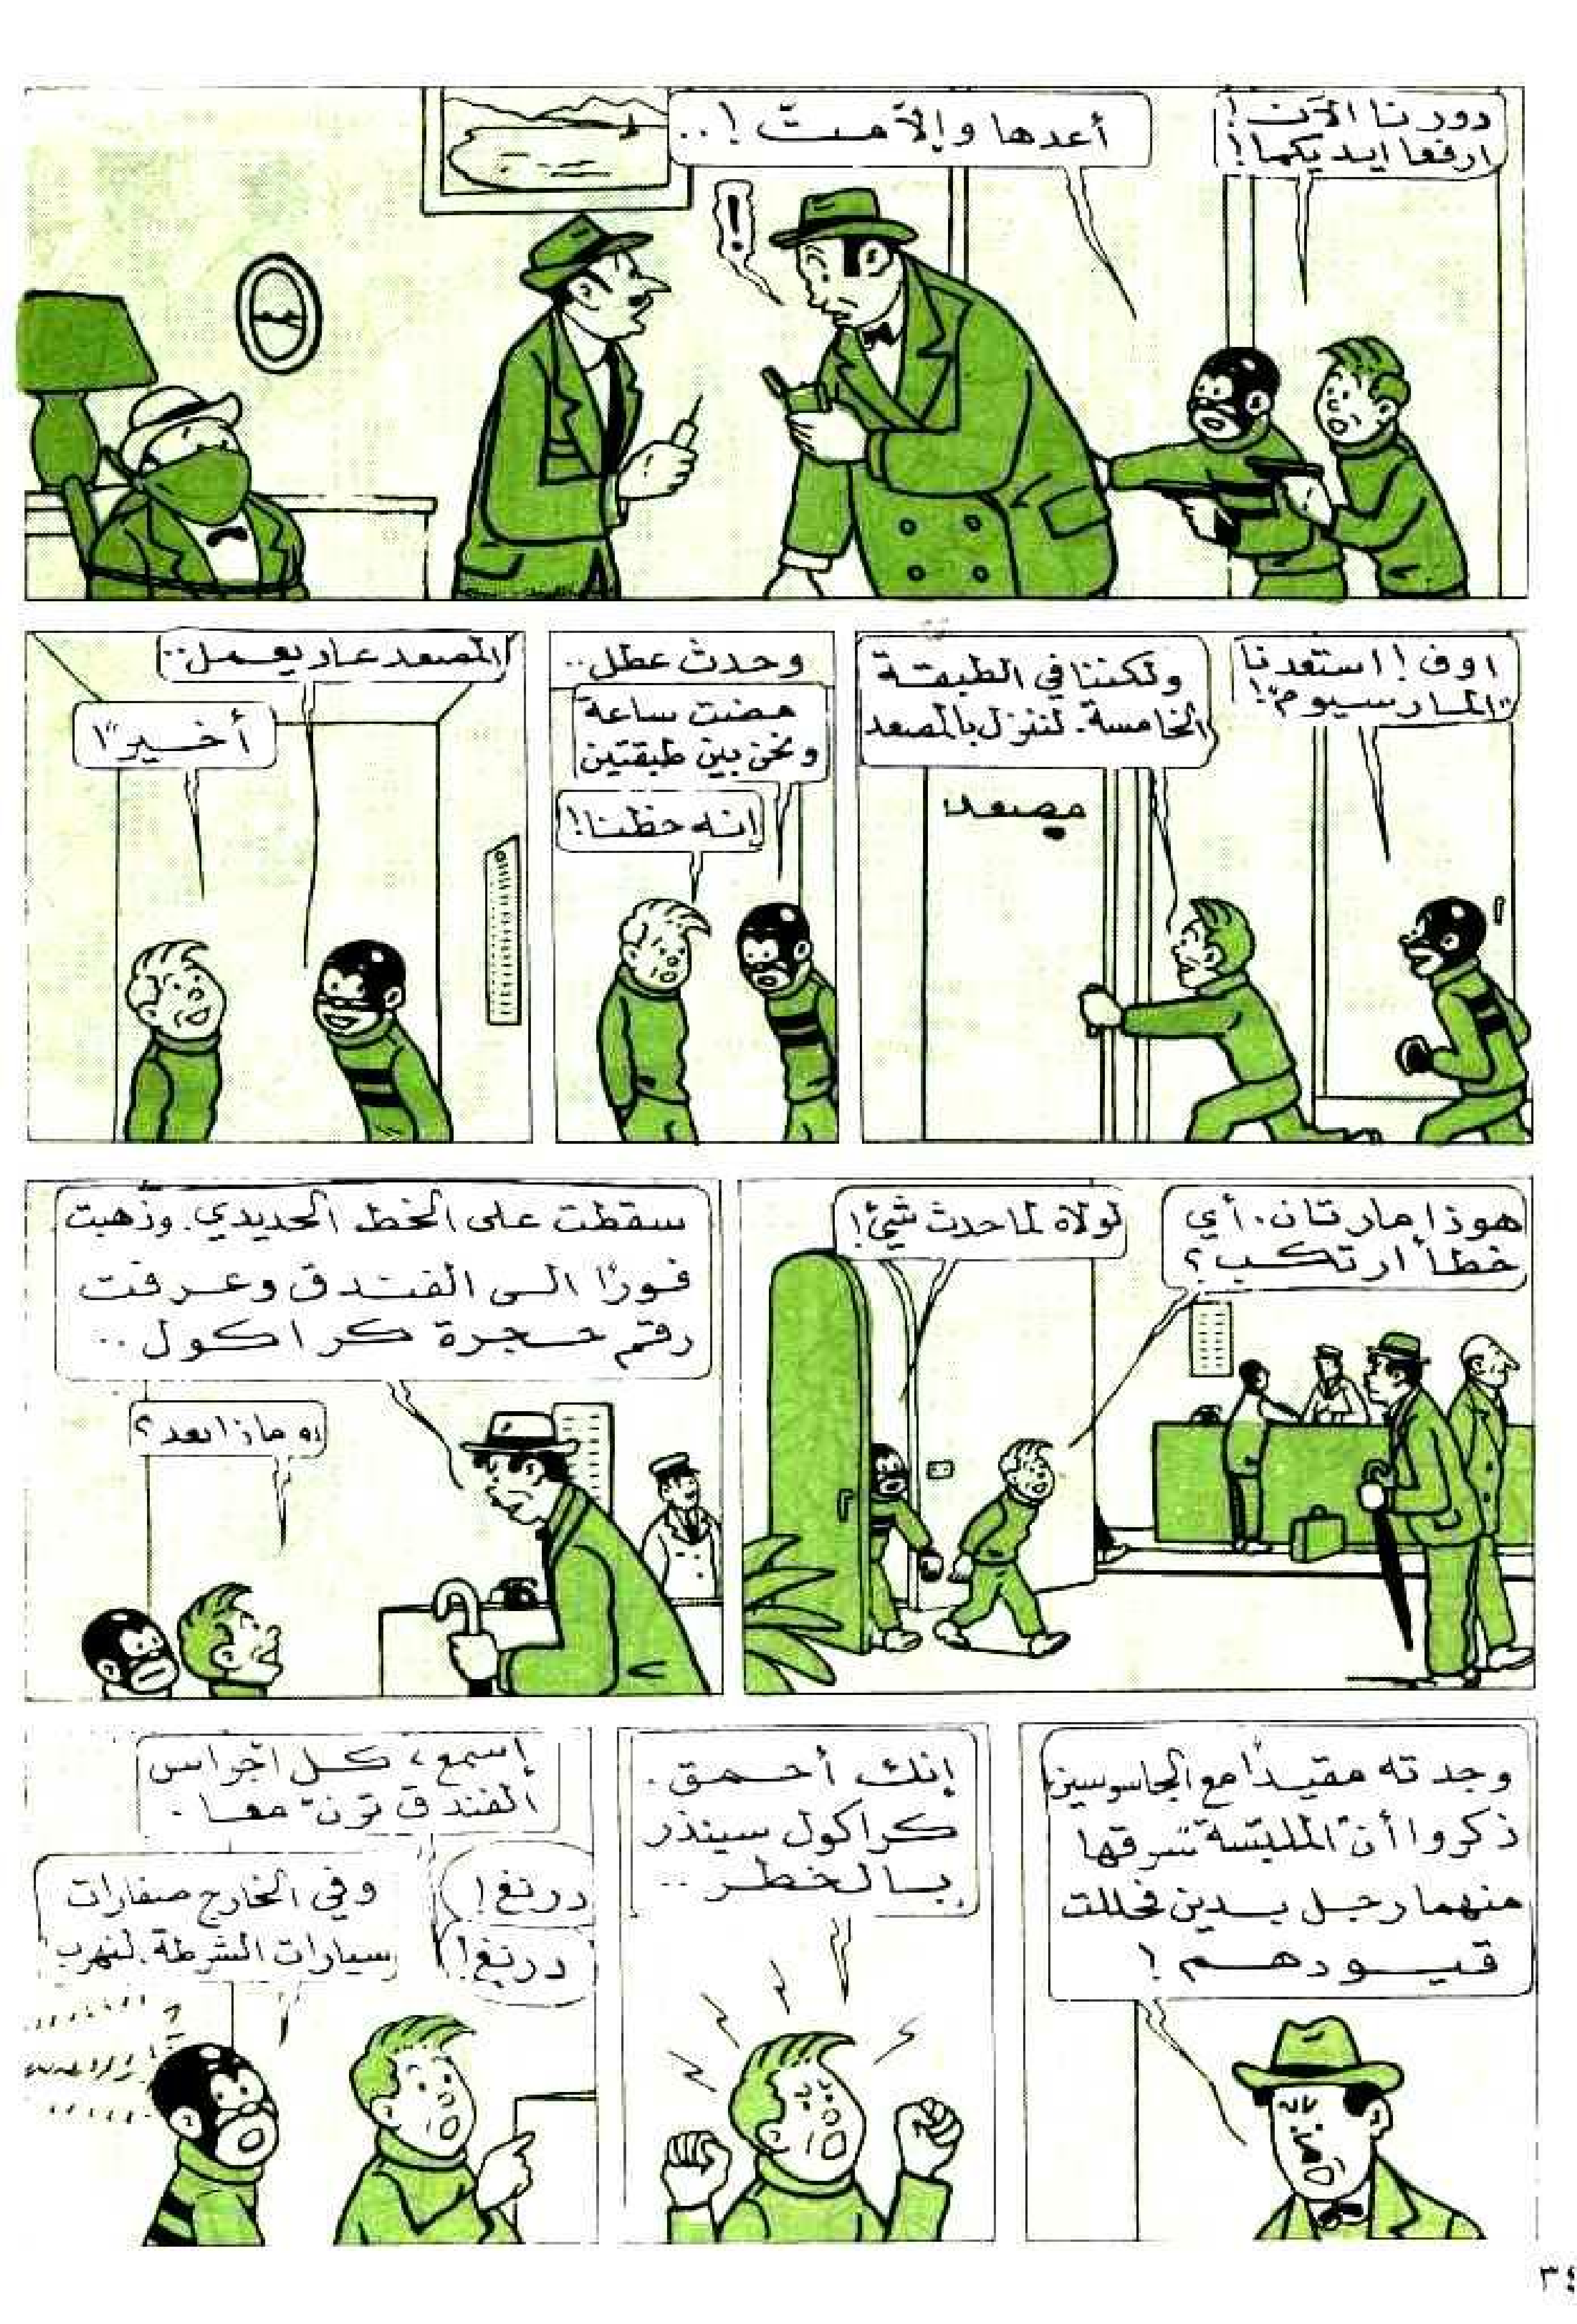 دورنا الآن!
ارفعا ايديكما!
أعدها وإلاّ متّ!..
!
اوف! استعدنا
"المارسيوم"!
ولكننا في الطبقة
الخامسة. لننزل بالمصعد
مصعد
وحدث عطل..
مضت ساعة
ونحن بين طبقتين
إنه حظنا!
المصعد عاد يعمل..
أخيرًا
هوذا مارتان. أي
خطأ ارتكب؟
لولاه لما حدث شيئ!
سقطت على الخط الحديدي. وذهبت
فورًا الى الفندق وعرفت
رقم حجرة كراكول..
وماذا بعد؟
وجدته مقيدًا مع الجاسوسين
ذكروا أنّ الملبّسة سرقها
منهما رجل بدين فحللت
قيودهم!
إنك أحمق.
كراكول سينذر
بالخطر..
إسمع، كل أجراس
الفندق ترنّ معا.
درنغ!
درنغ!
وفي الخارج صفارات
سيارات الشرطة. لنهرب
٣٤